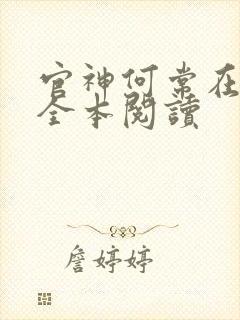 官神何常在
全本閱讀
詹婷婷